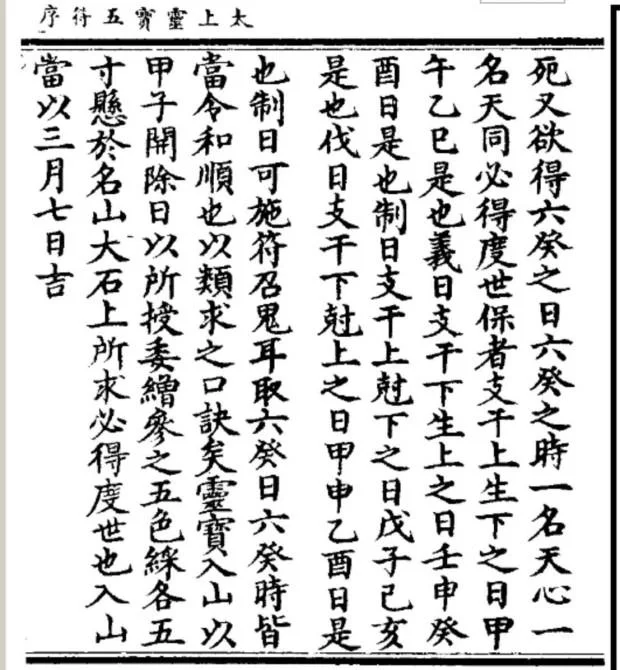 太上靈寶五符序
死又欲得六癸之日六癸之時一名天心一
名天同必得度世保者支干上生下之日甲
午乙巳是也義日支干下生上之日壬申癸
酉日是也制日支干上尅下之日戊子己亥
是也伐日支干下尅上之日甲申乙酉日是
也制日可施符召鬼耳取六癸日六癸時皆
當令和順也以類求之口訣矣靈寶入山以
甲子開除日以所授委繒參之五色綵各五
寸懸於名山大石上所求必得度世也入山
當以三月七日吉